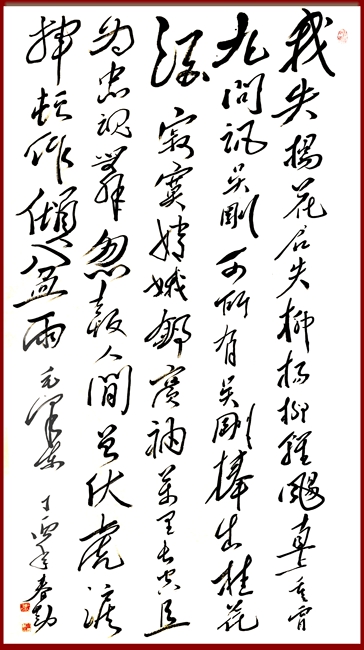 我失楊花君失柳楊柳輕颺直上重霄
九問訊吳剛何所有吳剛捧出桂花
酒寂寞嫦娥舒廣袖萬里長空且
為忠魂舞忽報人間曾伏虎淚
揮頓作傾盆雨 毛澤東 丁酉年春